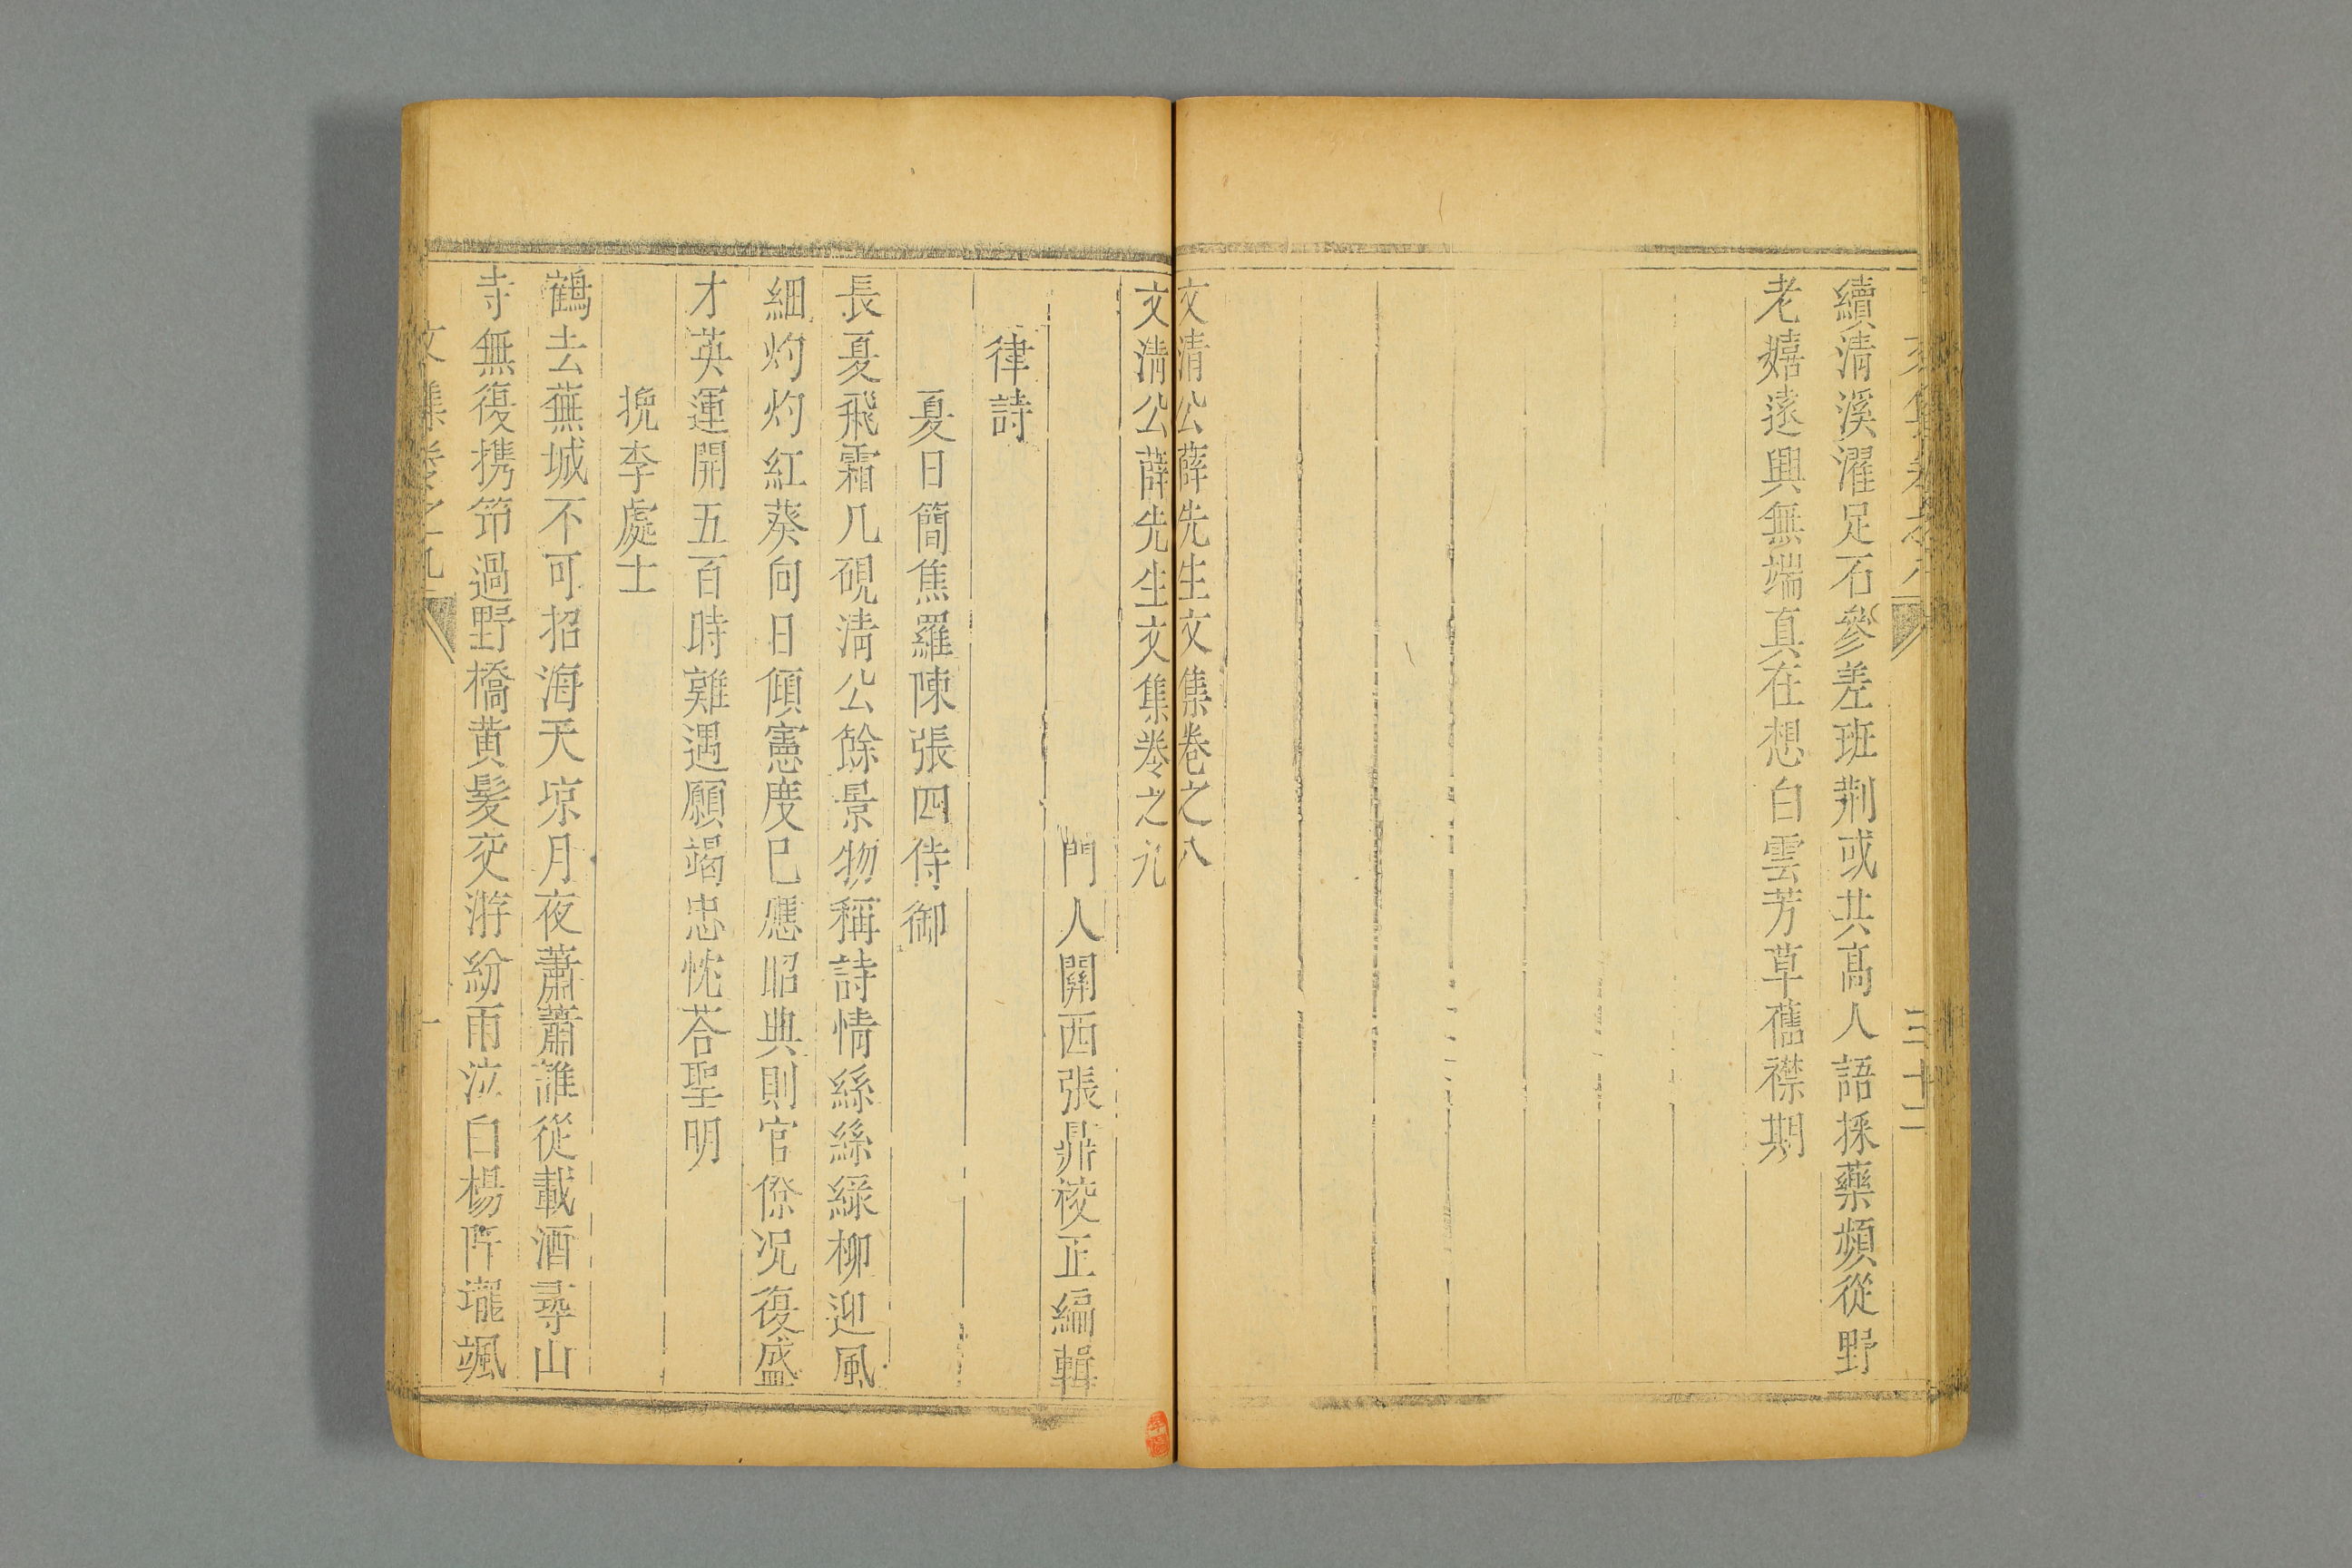 續清溪濯足石參差班荆或共高人語採藥頻從野
老嬉遠興無端真在想白雲芳草舊襟期
文清公薛先生文集卷之八
三十二
文清公薛先生文集卷之九
門人關西張鼎校正編輯
律詩
夏日簡焦羅陳張四侍御
長夏飛霜几硯清公餘景物稱詩情絲絲綠柳迎風
細灼灼紅葵向日傾憲度已應昭典則官僚况復盛
才英運開五百時難遇願竭忠忱荅聖明
挽李處士
鶴去蕪城不可招海天凉月夜蕭蕭誰從載酒尋山
寺無復携笻過野橋黄髮交游紛雨泣白楊阡壠颯
文集卷之九
一